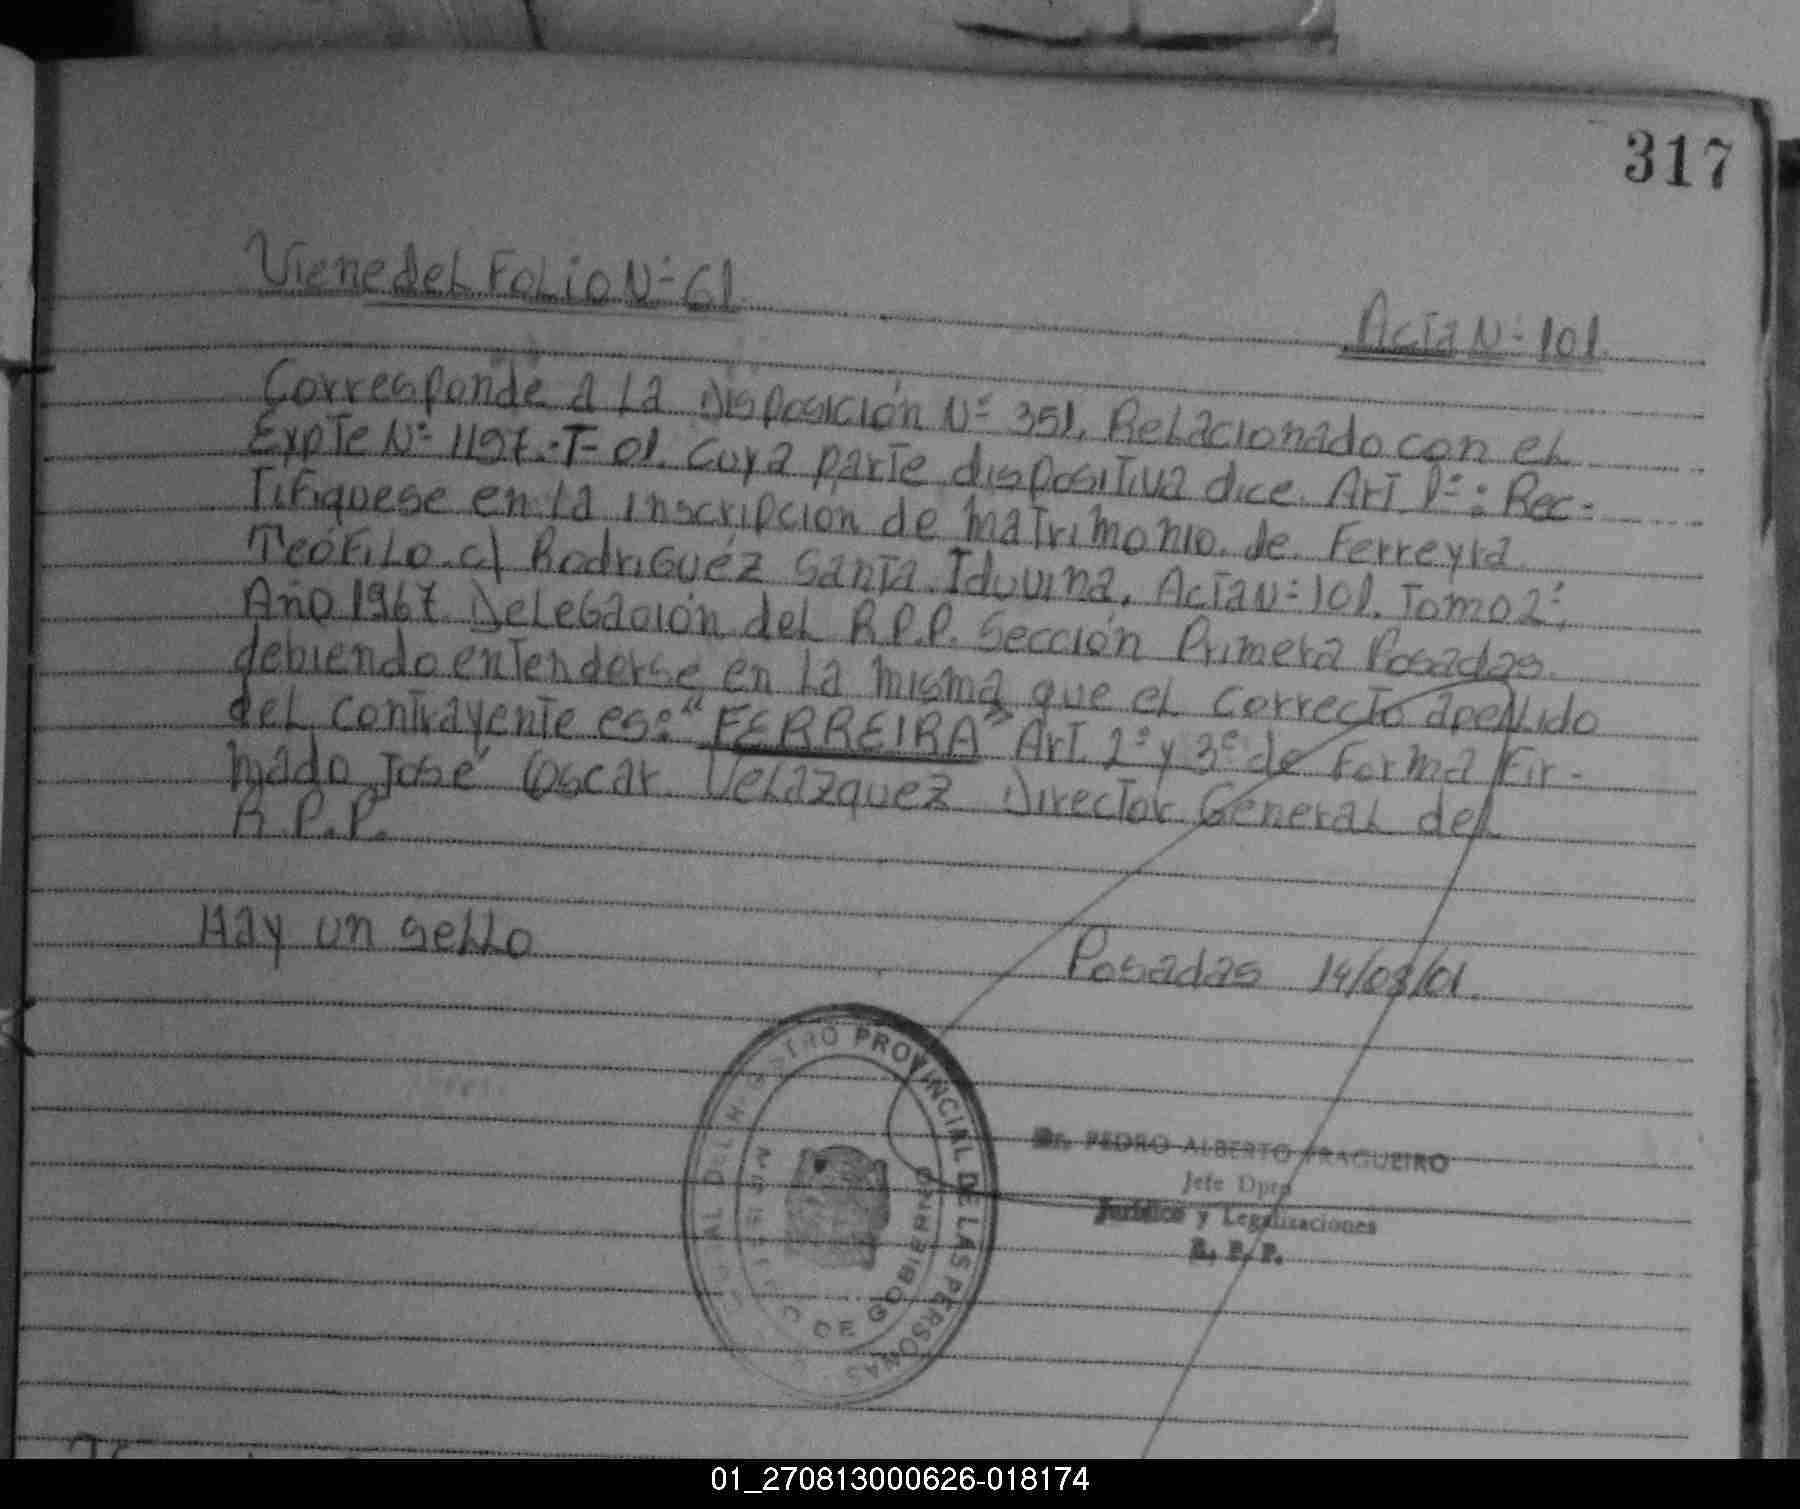 317
Viene del Folio Nº 61.
Acta Nº 101.
Corresponde a la Disposición Nº 351. Relacionado con el
Expte Nº 1197.-T-01. Cuya parte dispositiva dice. Art. 1º: Rec-
tifiquese en la inscripcion de matrimonio de Ferreyra
Teófilo c/ Rodriguéz Santa Iduvina, Acta Nº 101. Tomo 2º,
Año 1967. Delegación del R.P.P. Sección Primera Posadas.
debiendo entenderse en la misma que el correcto apellido
del contrayente es: "FERREIRA" Art. 2º y 3º de Forma Fir-
mado José Oscar Velazquez Director General del
R.P.P.
Hay un sello
Posadas 14/03/01.
REGISTRO PROVINCIAL DE LAS PERSONAS
MINISTERIO DE GOBIERNO
Dr. PEDRO ALBERTO FRAGUEIRO
Jefe Dpto
Jurídico y Legalizaciones
R. P. P.
01_270813000626-018174